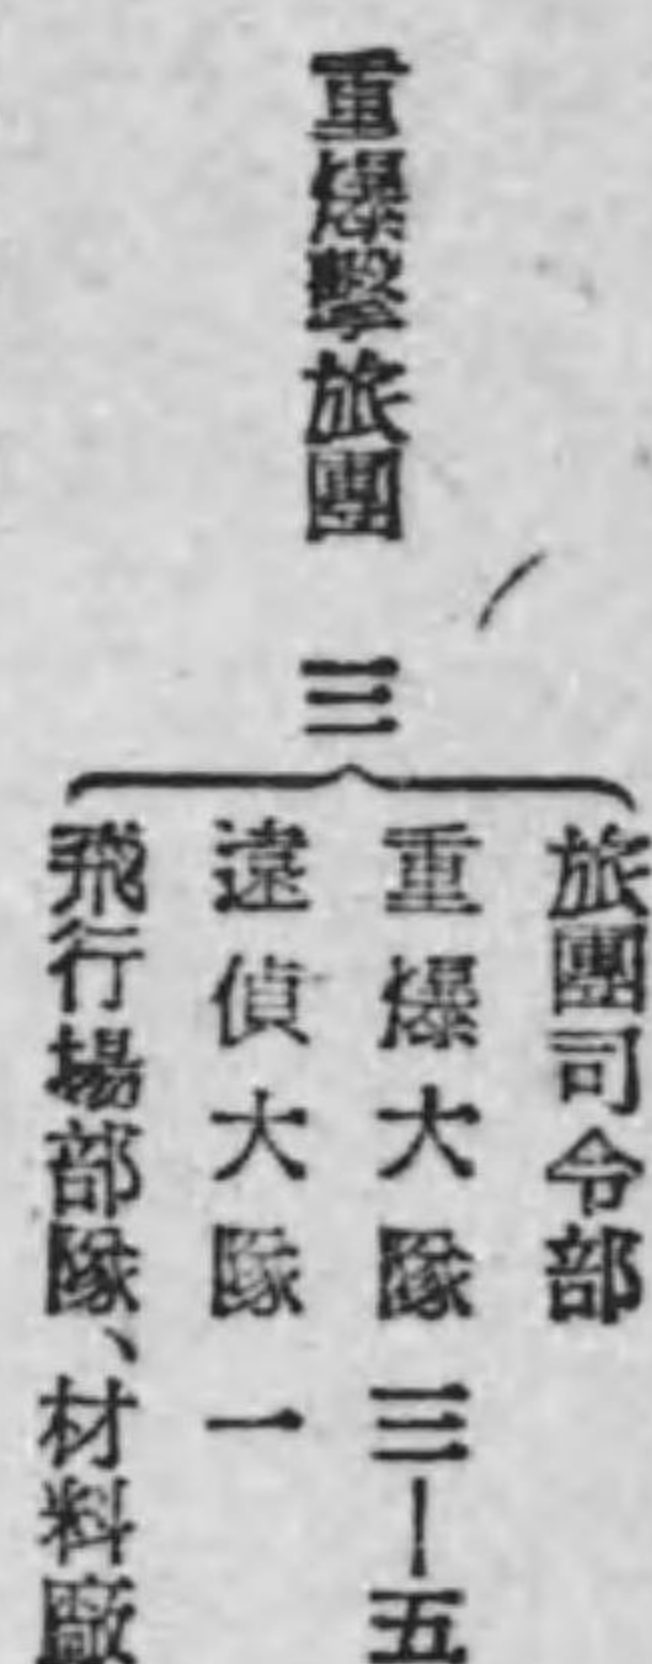 重爆擊旅團 三
旅團司令部
重爆大隊 三—五
遠偵大隊 一
飛行場部隊、材料廠